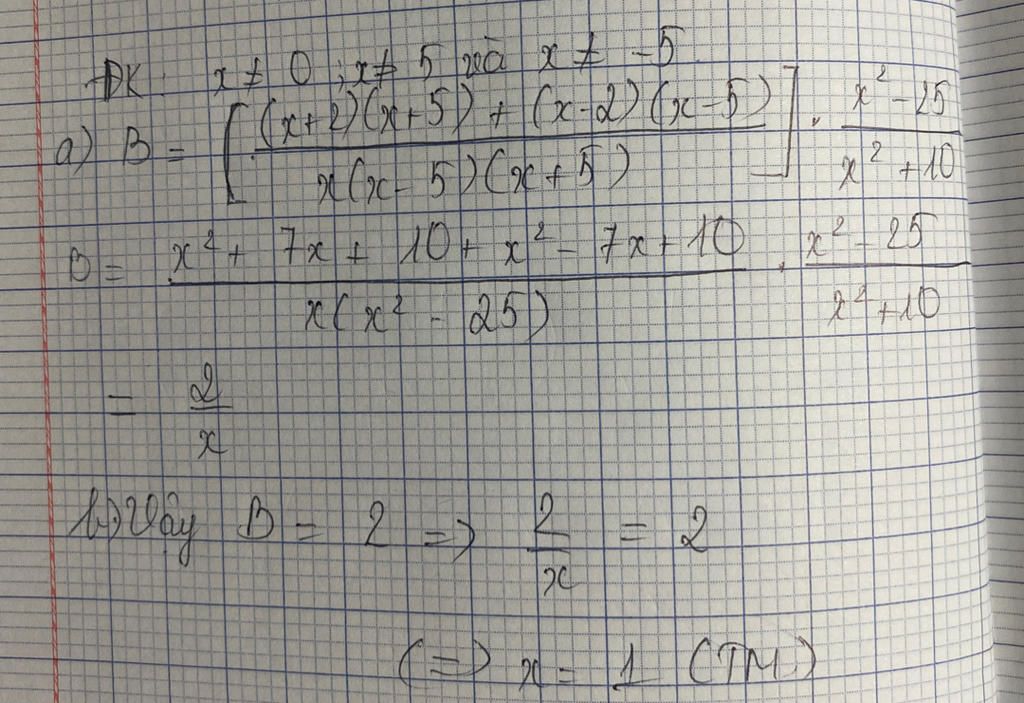 ĐK: x ≠ 0 ; x ≠ 5 và x ≠ -5
a) B = [ ((x+2)(x+5) + (x-2)(x-5)) / (x(x-5)(x+5)) ] . (x² - 25) / (x² + 10)
B = (x² + 7x + 10 + x² - 7x + 10) / (x(x² - 25)) . (x² - 25) / (x² + 10)
= 2/x
b) Vậy B = 2 => 2/x = 2
(=) x = 1 (TM)